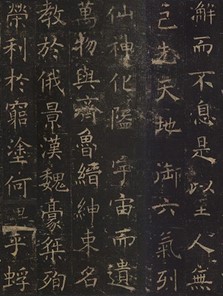 而不息是以至人無
己先天地御六氣列
仙神化隘宇宙而遺
萬物與齊魯縉紳束名
教於俄景漢魏豪桀殉
榮利於窮塗何異乎蜉